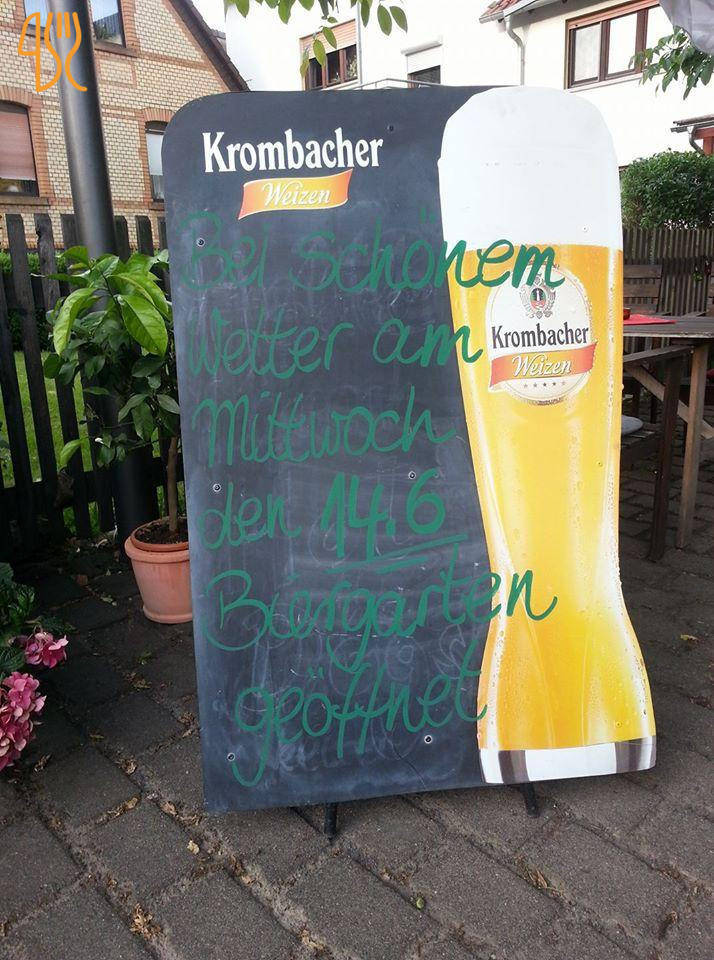 Krombacher
Weizen
Bei schönem
Wetter am
Mittwoch
den 14.6
Biergarten
geöffnet
Krombacher
Weizen